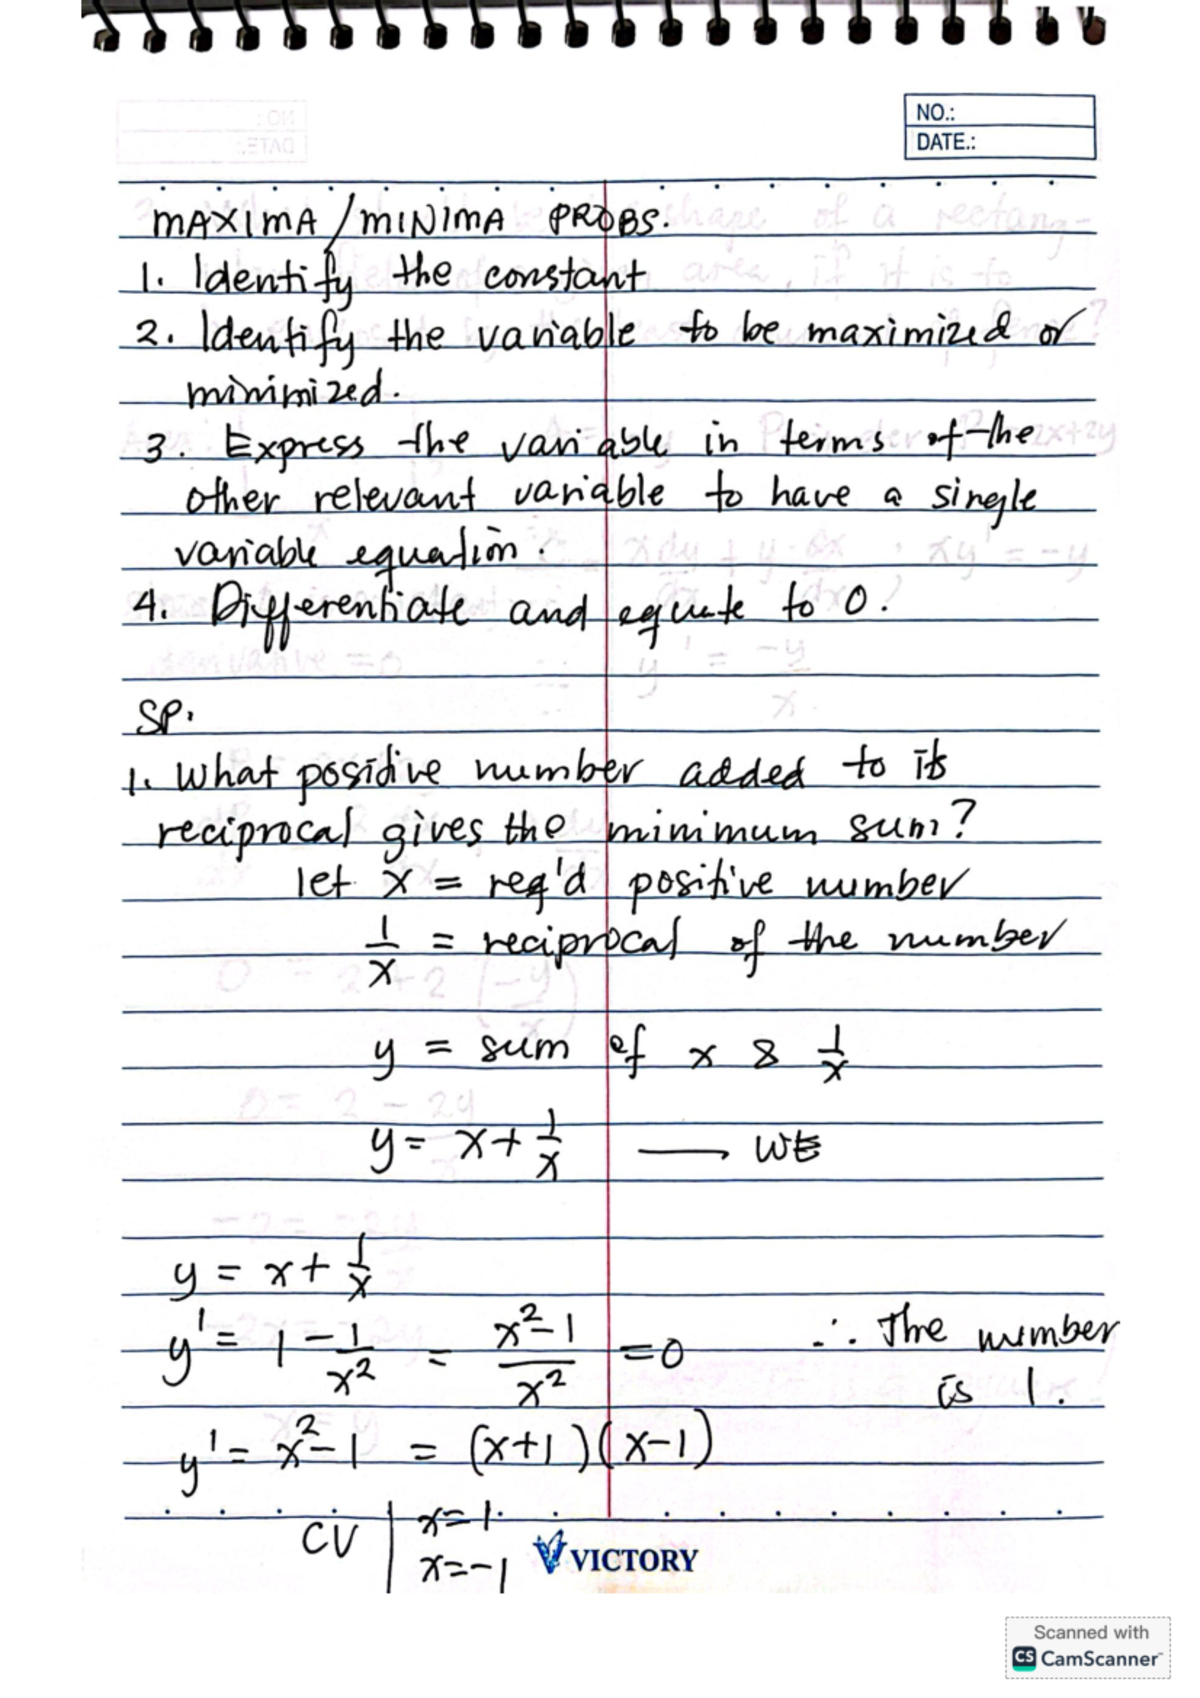 NO.:
DATE.:
MAXIMA / MINIMA PROBS.
1. Identify the constant
2. Identify the variable to be maximized or
minimized.
3. Express the variable in terms of the
other relevant variable to have a single
variable equation.
4. Differentiate and equate to 0.
SP.
1. What positive number added to its
reciprocal gives the minimum sum?
let x = req'd positive number
1/x = reciprocal of the number
y = sum of x & 1/x
y = x + 1/x — WE
y = x + 1/x
y' = 1 - 1/x² = x²-1/x² = 0 ∴ The number
is 1.
y' = x²-1 = (x+1)(x-1)
CV | x=1
x=-1
VICTORY
Scanned with
CS CamScanner